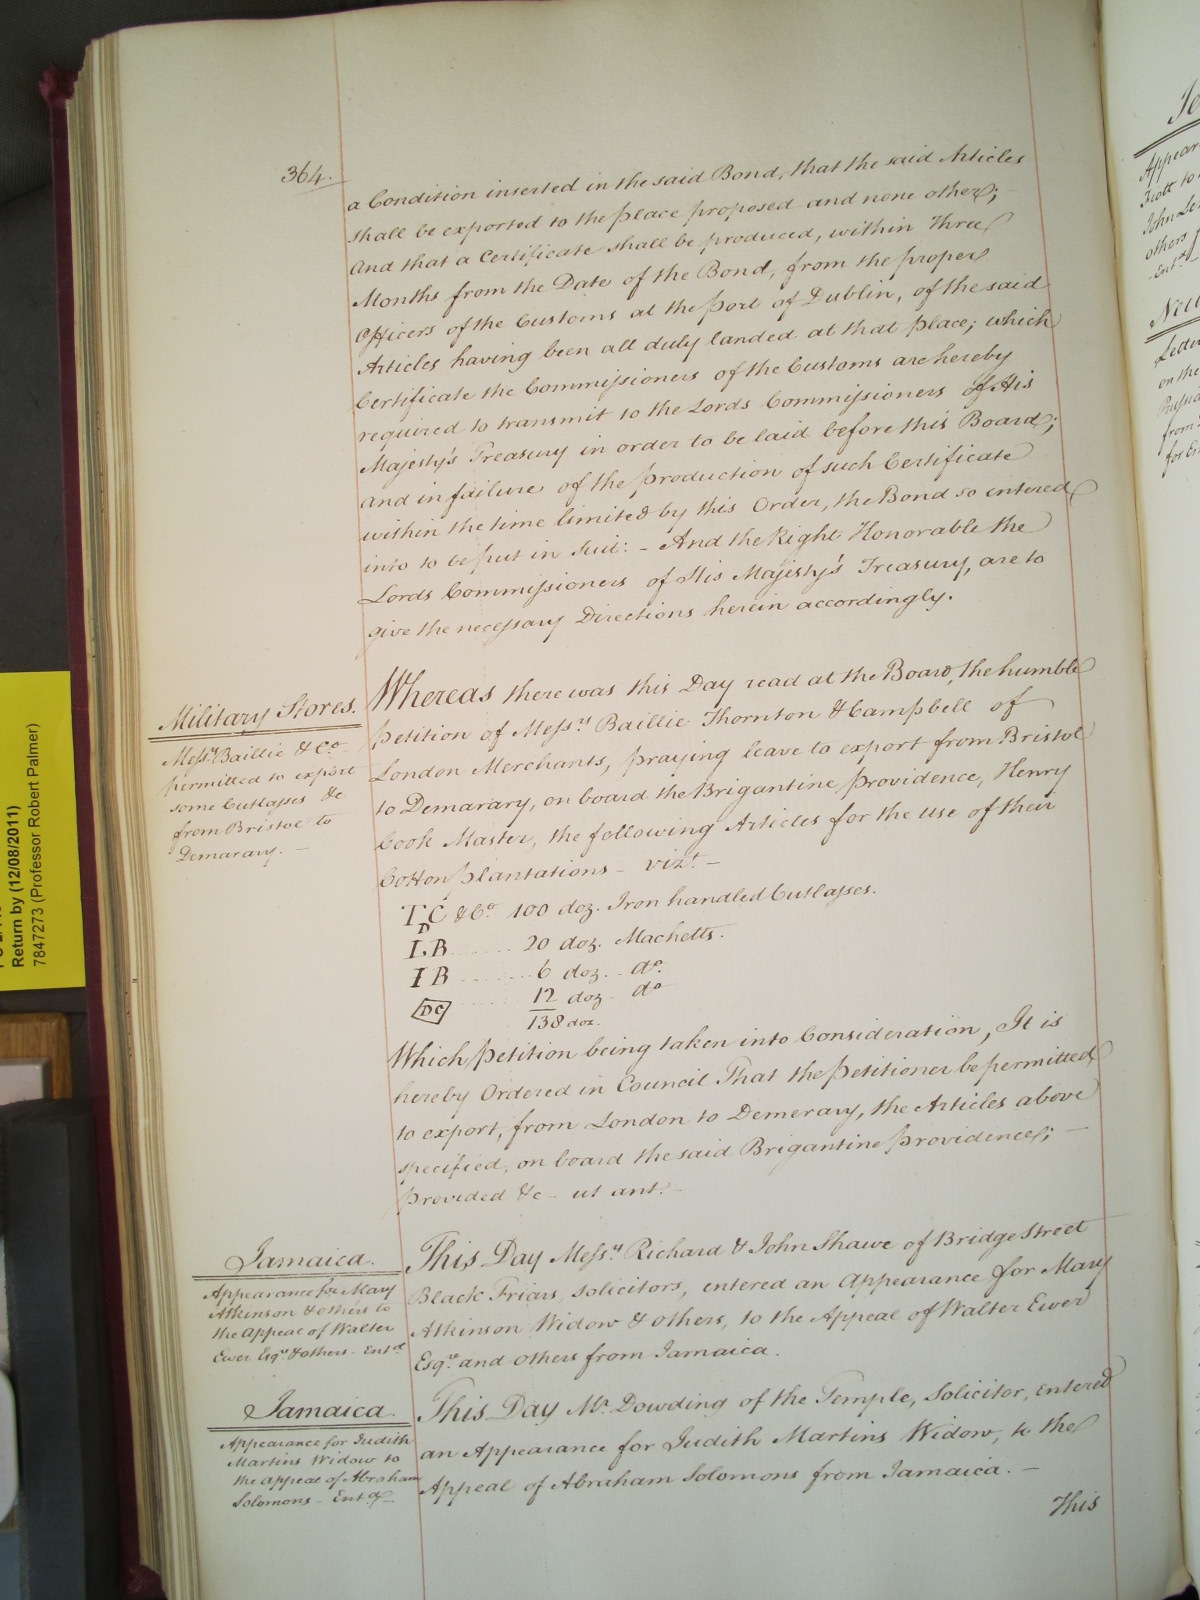 364.
a Condition inserted in the said Bond, that the said Articles
shall be exported to the place proposed and none other;
And that a Certificate shall be produced, within Three
Months from the Date of the Bond, from the proper
Officers of the Customs at the Port of Dublin, of the said
Articles having been all duly landed at that place; which
Certificate the Commissioners of the Customs are hereby
required to transmit to the Lords Commissioners of His
Majesty's Treasury in order to be laid before this Board;
and in failure of the production of such Certificate
within the time limited by this Order, the Bond so entered
into to be put in Suit: - And the Right Honorable the
Lords Commissioners of His Majesty's Treasury, are to
give the necessary Directions herein accordingly.
Military Stores.
Messrs Baillie & Co
permitted to export
some Cutlasses &c
from Bristol to
Demarary. -
Whereas there was this Day read at the Board, the humble
Petition of Messrs Baillie Thornton & Campbell of
London Merchants, praying leave to export from Bristol
to Demarary, on board the Brigantine Providence, Henry
Cook Master, the following Articles for the use of their
Cotton Plantations - vizt -
T C & Co 100 doz. Iron handled Cutlasses.
D
I B 20 doz. Machetts.
I B 6 doz. do
DC 12 doz do
138 doz.
Which Petition being taken into Consideration, It is
hereby Ordered in Council That the Petitioner be permitted
to export, from London to Demerary, the Articles above
specified, on board the said Brigantine Providence; -
Provided &c - ut ant. -
Jamaica.
Appearance for Mary
Atkinson & others to
the Appeal of Walter
Ewer Esqr & others - Entd
This Day Messrs Richard & John Shawe of Bridge Street
Black Friars, Solicitors, entered an Appearance for Mary
Atkinson Widow & others, to the Appeal of Walter Ewer
Esqr and others from Jamaica.
Jamaica.
Appearance for Judith
Martins Widow to
the Appeal of Abraham
Solomons - Entd
This Day Mr Dowding of the Temple, Solicitor, entered
an Appearance for Judith Martins Widow, to the
Appeal of Abraham Solomons from Jamaica. -
This
Return by (12/08/2011)
7847273 (Professor Robert Palmer)
Appear
John Le
others
Entd
Letter
on the
from